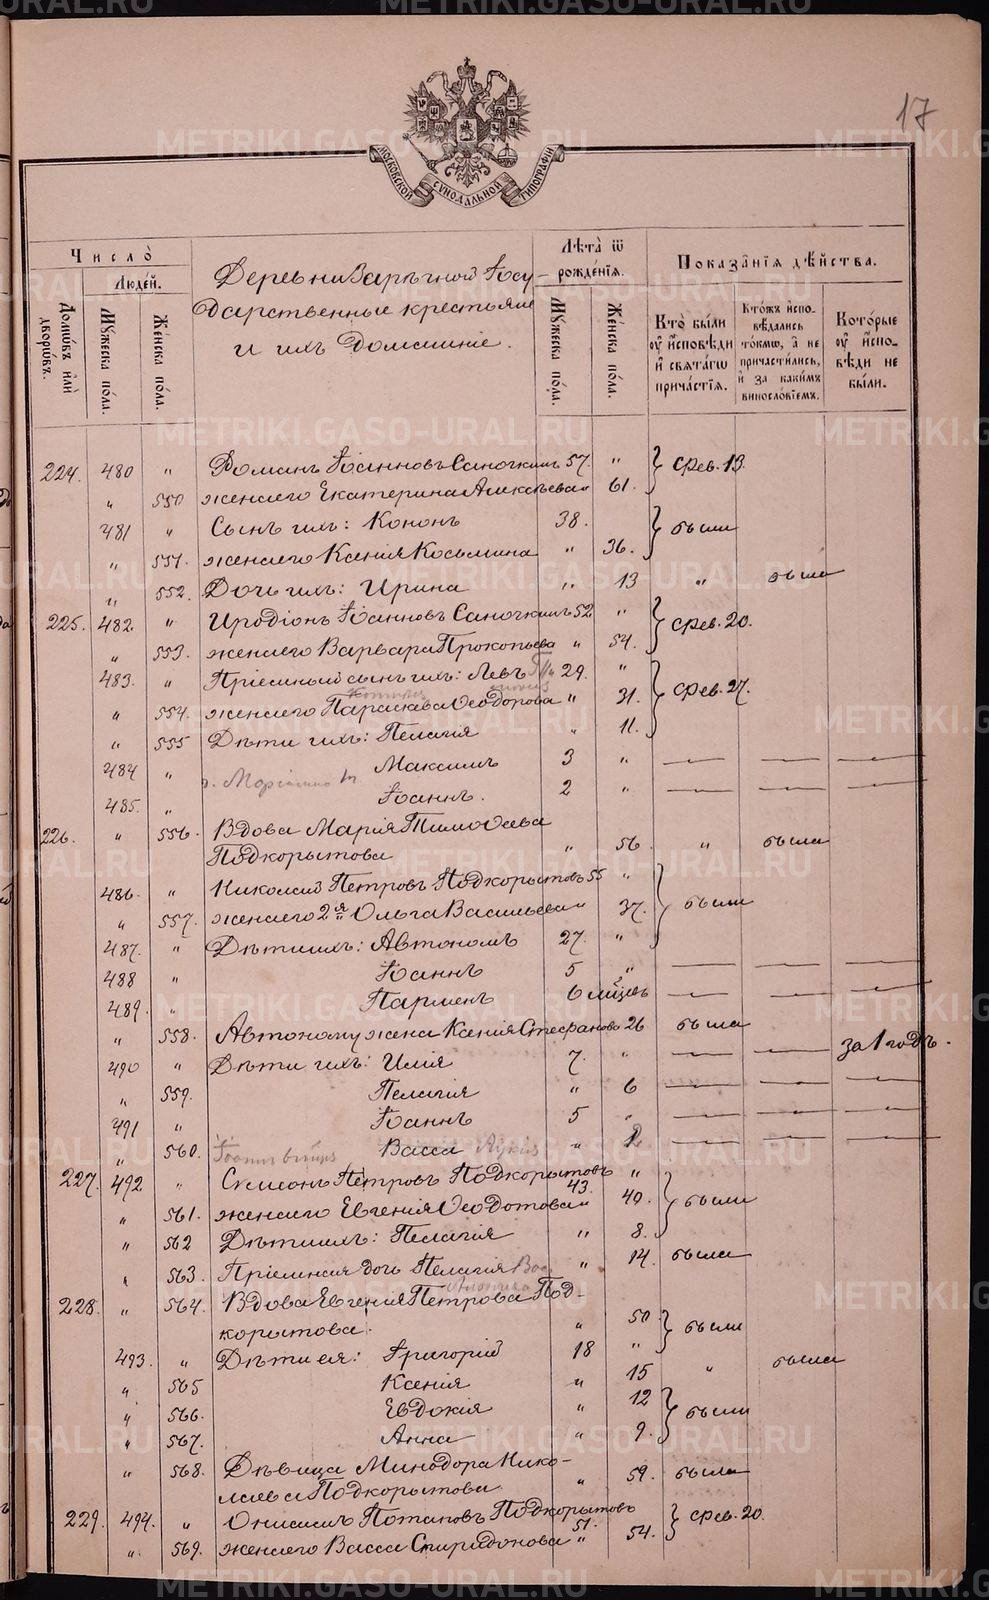 17
МОСКОВСКОЙ СѴНОДАЛЬНОЙ ТИПОГРАФІИ
Число̀
Людéй.
Домѡ́въ и҆лѝ дворѡ́въ.
Мꙋ́жеска по́ла.
Же́нска по́ла.
Деревни Заречной Госу-
дарственные крестьяне
и ихъ домашніе.
Лѣта̀ ѿ рожде́нїѧ.
Мꙋ́жеска по́ла.
Же́нска по́ла.
Показа̑нїѧ дѣ́йства.
Кто̀ бы́ли оу҆ и҆сповѣди и҆ свѧта́гѡ причастїѧ.
Кто́жъ и҆спо-вѣдались то́кмѡ, а҆ не причастились, и҆ за каки́мъ винослѡ́вїемъ.
Кото́рые оу҆ и҆спо-вѣди не бы́ли.
224. 480 " Романъ Іоанновъ Саночкинъ 57. " фев. 13.
" 550 жена его Екатерина Алексѣева " 61.
481 " Сынъ ихъ: Кононъ 38. были
" 551. жена его Ксенія Косьмина " 36.
" 552. Дочь ихъ: Ирина " 13 " была
225. 482. " Иродіонъ Іоанновъ Саночкинъ 52 " фев. 20.
" 553. жена его Варвара Прокопьева " 54.
483. " Пріемный сынъ ихъ: Левъ 29. " фев. 27.
" 554. жена его Параскева Ѳеодорова " 31.
" 555 Дѣти ихъ: Пелагія " 11.
484 " Максимъ 3 " — — —
485. " Іоаннъ. 2 " — — —
226. " 556. Вдова Марія Тимоѳеева
Подкорытова " 56 " была
486. " Николай Петровъ Подкорытовъ 55 " были
" 557. жена его 2я Ольга Васильева " 37.
487. " Дѣти ихъ: Автономъ 27. "
488 " Іоаннъ 5 " — — —
489. " Парменъ 6 мѣсяц — — —
" 558. Автоному жена Ксенія Стефанова 26 была
490 " Дѣти ихъ: Илія 7. " — — за 1 годъ.
" 559. Пелагія " 6 — — —
491 " Іоаннъ 5 " — — —
" 560. Васса " 2 — — —
227. 492 " Симеонъ Петровъ Подкорытовъ 43. " были
" 561. жена его Евгенія Ѳеодотова " 40.
" 562 Дѣти ихъ: Пелагія " 8.
" 563. Пріемная дочь Пелагія " 14. была
228. " 564. Вдова Евгенія Петрова Под-
корытова. " 50 были
493. " Дѣти ея: Григорій 18 "
" 565 Ксенія " 15 " была
" 566. Евдокія " 12 были
" 567. Анна " 9.
" 568. Дѣвица Минодора Нико-
лаева Подкорытова. " 59. была
229. 494. " Онисимъ Потаповъ Подкорытовъ 51. фев. 20.
" 569. жена его Васса Спиридонова " 54.
METRIKI.GASO-URAL.RU